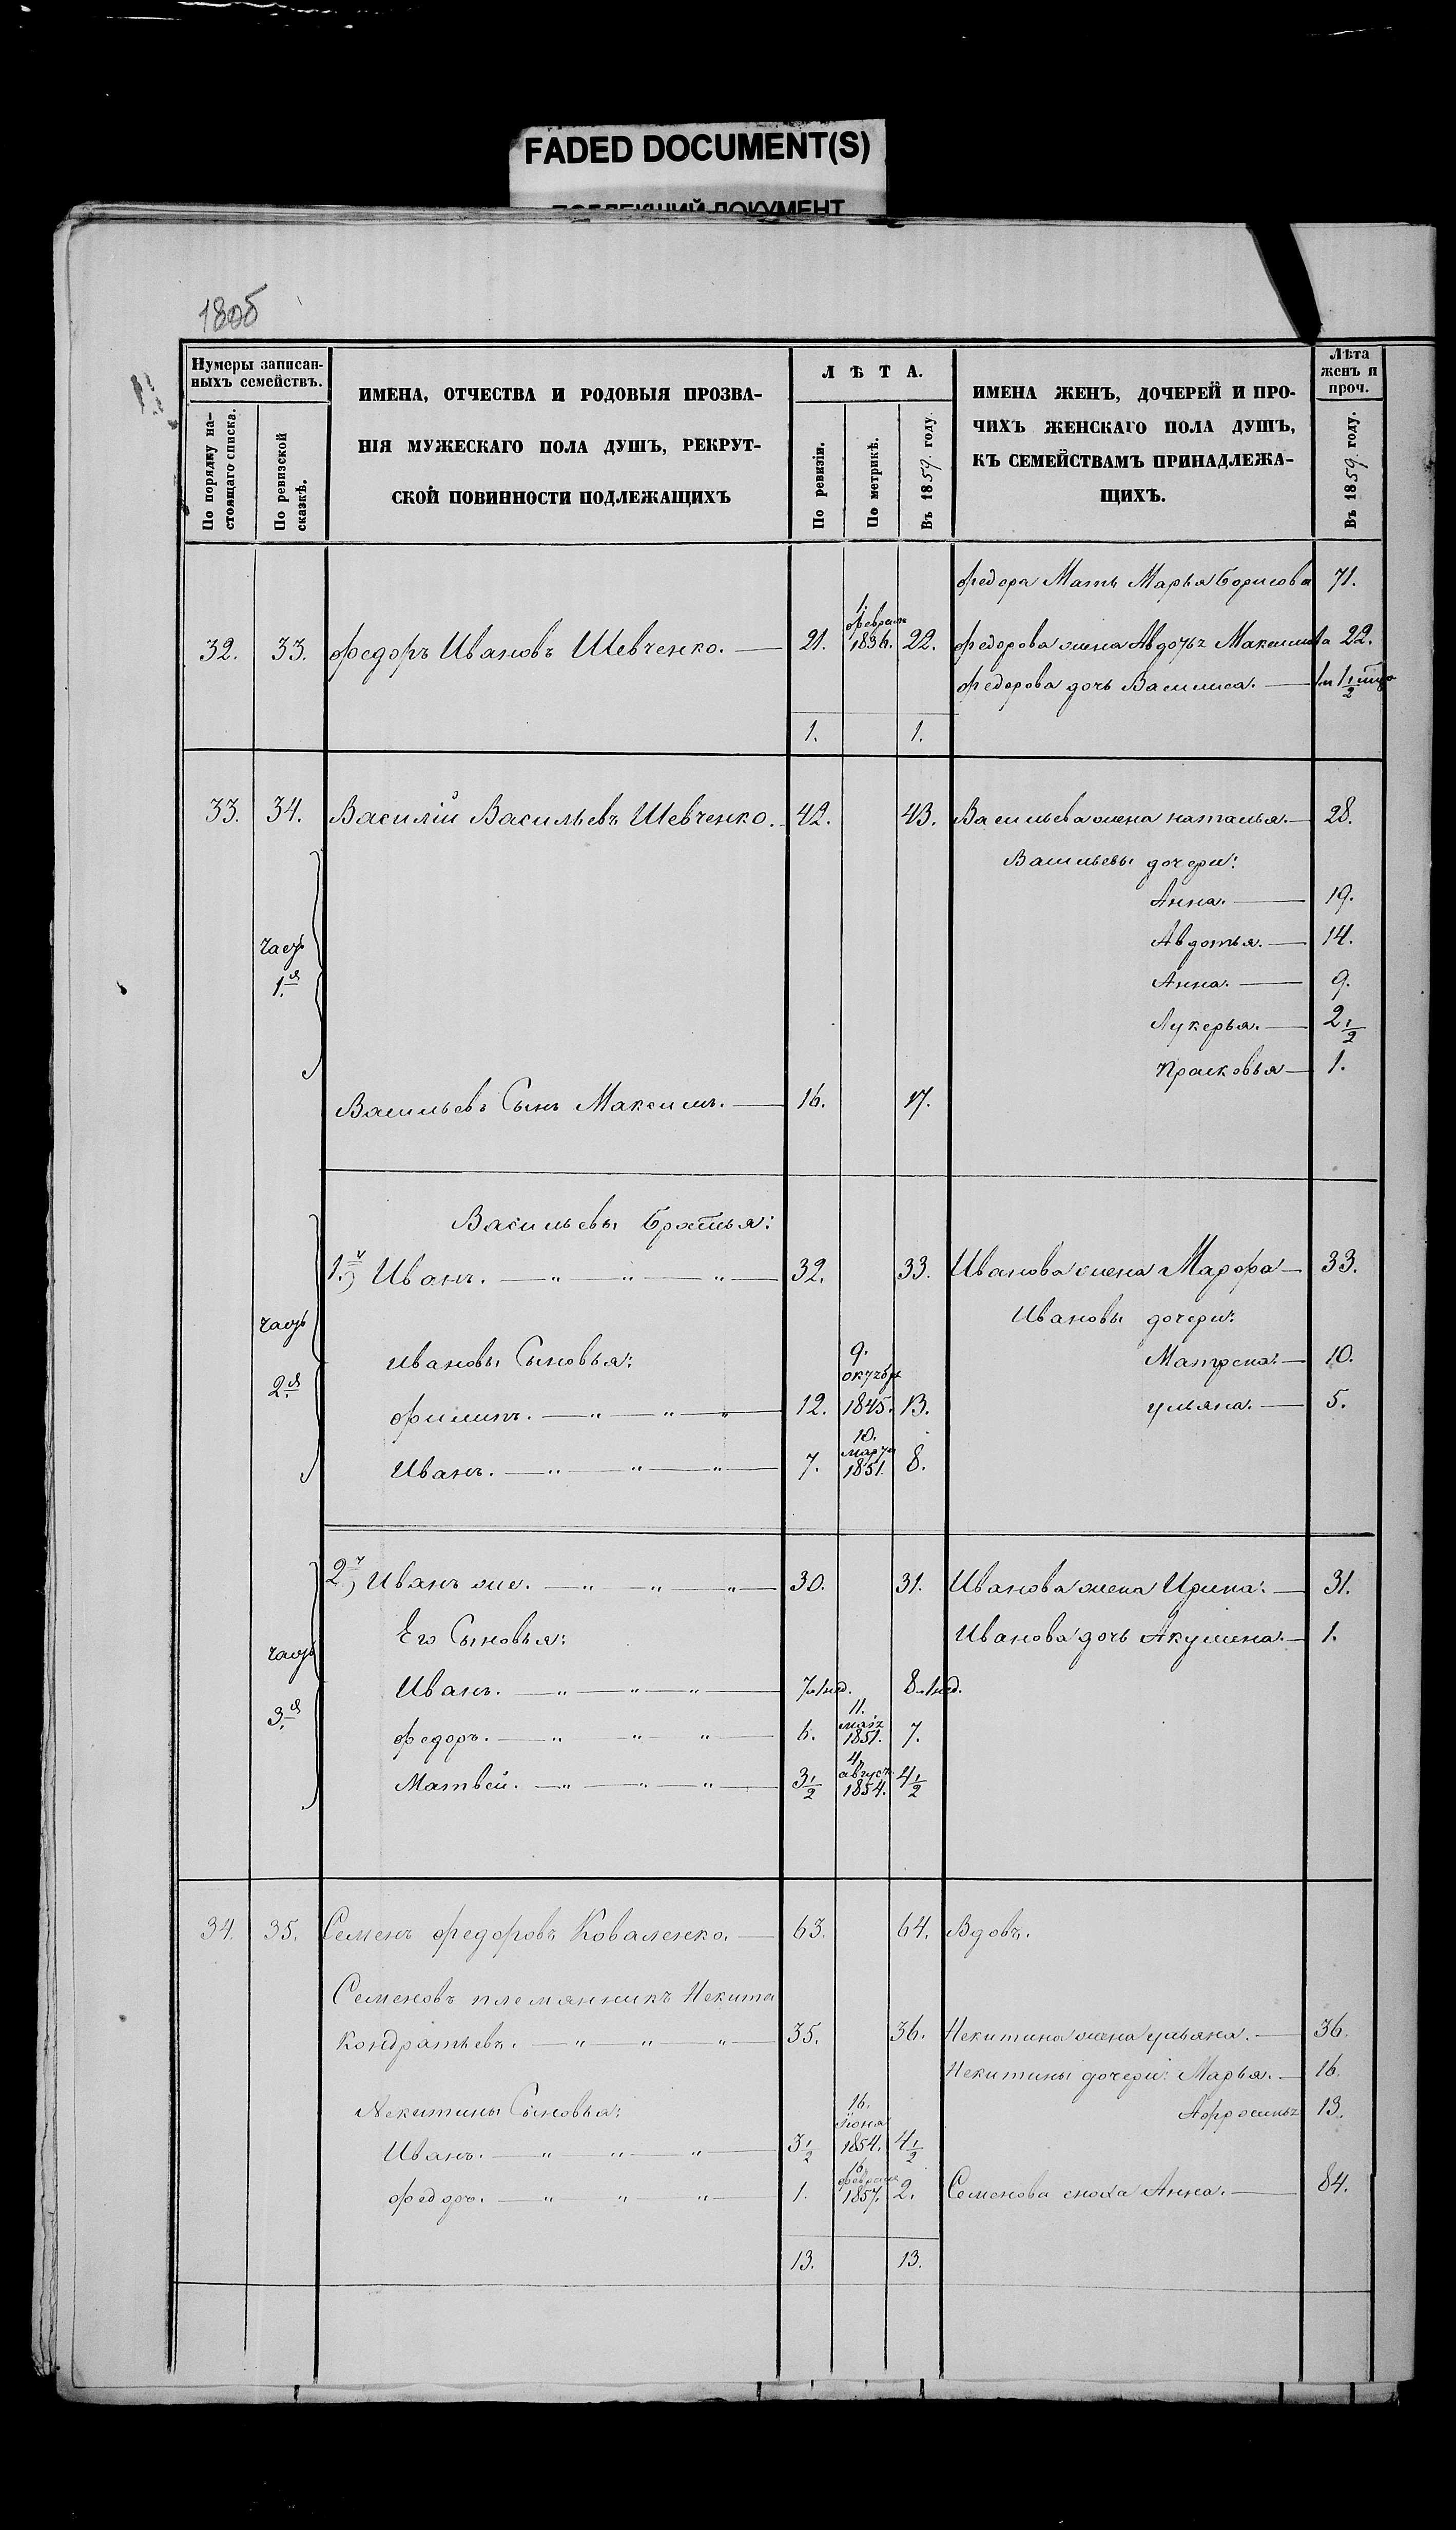 FADED DOCUMENT(S)
1805
Нумеры записан-
ныхъ семействъ.
По порядку на-
стоящаго списка.
По ревизской
сказкѣ.
ИМЕНА, ОТЧЕСТВА И РОДОВЫЯ ПРОЗВА-
НІЯ МУЖЕСКАГО ПОЛА ДУШЪ, РЕКРУТ-
СКОЙ ПОВИННОСТИ ПОДЛЕЖАЩИХЪ
ЛѢТА.
По ревизіи.
По метрикѣ.
Въ 1859. году.
ИМЕНА ЖЕНЪ, ДОЧЕРЕЙ И ПРО-
ЧИХЪ ЖЕНСКАГО ПОЛА ДУШЪ,
КЪ СЕМЕЙСТВАМЪ ПРИНАДЛЕЖА-
ЩИХЪ.
Лѣта
женъ и
проч.
Въ 1859. году.
федора Мать Марья Борисова 71.
32. 33. федоръ Ивановъ Шевченко. — 21. 1. феврал 1836. 22. федорова жена Авдотья Максимова 22.
федорова дочь Василиса. — 1 1/2
1. 1.
33. 34. Василій Васильевъ Шевченко. 42. 43. Васильева жена наталья. — 28.
Васильевы дочери:
Анна. — 19.
Авдотья. — 14.
часть
1.я
Анна. — 9.
Лукерья. — 2 1/2
Прасковья — 1.
Васильевъ Сынъ Максимъ. — 16. 17.
Васильевы братья:
1.й Иванъ. — „ — „ — „ — 32. 33. Иванова жена Марфа — 33.
Ивановы дочери:
часть
2.я
Ивановы Сыновья: Матрена. — 10.
филипъ. — „ — „ — „ — 12. 9. октября 1845. 13. ульяна. — 5.
Иванъ. — „ — „ — „ — 7. 10. марта 1851. 8.
2.й Иванъ же. — „ — „ — „ — 30. 31. Иванова жена Ирина. — 31.
Его Сыновья: Иванова дочь Акулина. — 1.
часть
3.я
Иванъ. — „ — „ — „ — 7. 1 нед. 8. 1 нед.
федоръ. — „ — „ — „ — 6. 11. мая 1851. 7.
Матвей. — „ — „ — „ — 3 1/2 4. август. 1854. 4 1/2
34. 35. Семенъ федоровъ Коваленко. — 63. 64. Вдовъ.
Семеновъ племянникъ Некита
Кондратьевъ. — „ — „ — „ — 35. 36. Некитина жена ульяна. — 36.
Некитины дочери: Марья. — 16.
Некитины Сыновья: Афросинья 13.
Иванъ. — „ — „ — „ — 3 1/2 16. іюня 1854. 4 1/2
федоръ. — „ — „ — „ — 1. 16. феврал 1857. 2. Семенова сноха Анна. — 84.
13. 13.